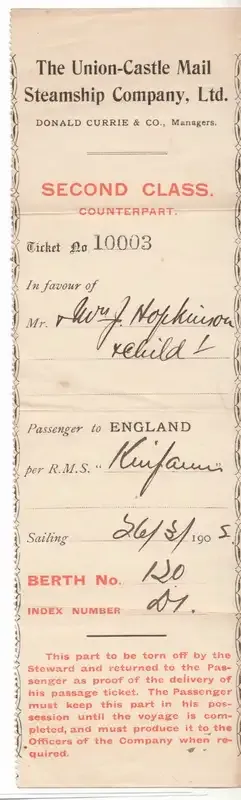 The Union-Castle Mail
Steamship Company, Ltd.
DONALD CURRIE & CO., Managers.
SECOND CLASS.
COUNTERPART.
Ticket No 10003
In favour of
Mr. & Mrs J. Hopkinson
& child
Passenger to ENGLAND
per R.M.S. "Kinfauns"
Sailing 26/3/1905.
BERTH No. 120
INDEX NUMBER D1.
This part to be torn off by the
Steward and returned to the Pas-
senger as proof of the delivery of
his passage ticket. The Passenger
must keep this part in his pos-
session until the voyage is com-
pleted, and must produce it to the
Officers of the Company when re-
quired.